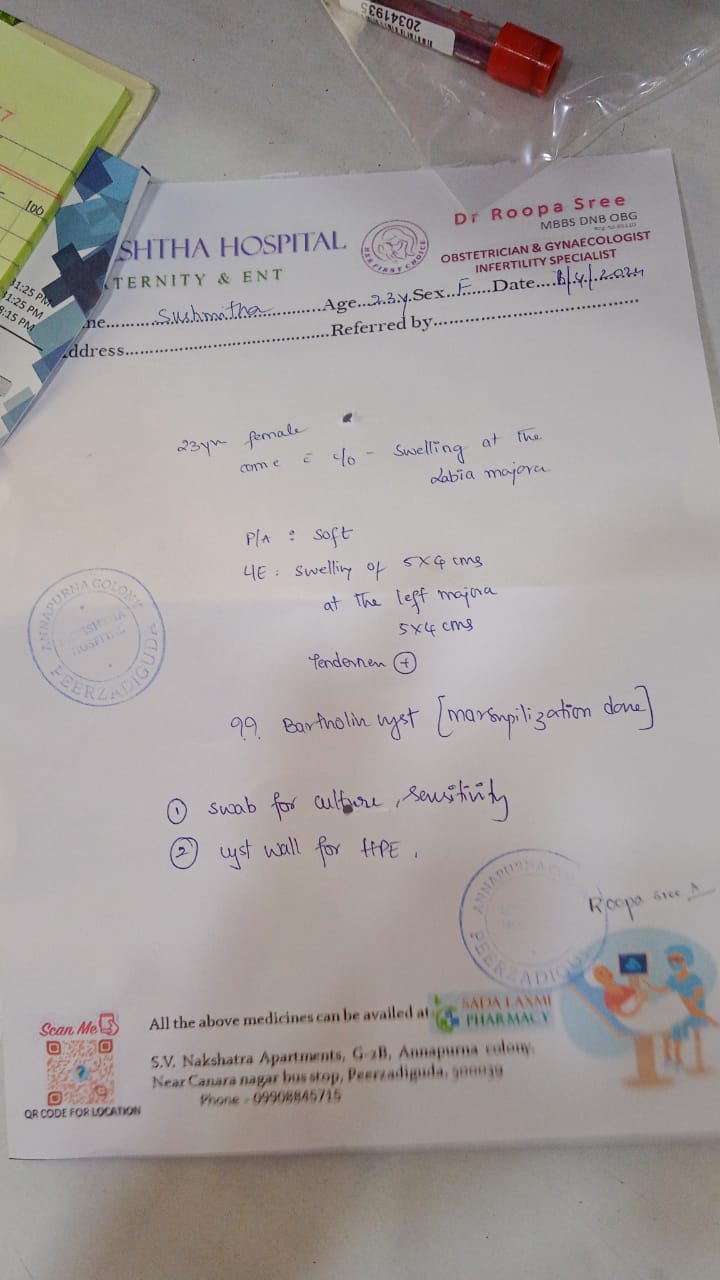 20341935
100
11:25 PM
11:25 PM
8:15 PM
SHTHA HOSPITAL
TERNITY & ENT
HER FIRST CHOICE
Dr Roopa Sree
MBBS DNB OBG
OBSTETRICIAN & GYNAECOLOGIST
INFERTILITY SPECIALIST
me..........Sushmitha..........Age...23y.Sex...F.....Date.......2024
ddress..........Referred by..........
23yr female
come c̄ c/o - swelling at the
Labia majora
P/A : soft
L/E : swelling of 5x4 cms
at the left majora
5x4 cms
Tenderness (+)
Bartholin cyst [marsupilization done]
① swab for culture, sensitivity
② cyst wall for HPE.
ANNAPURNA COLONY
HOSPITAL
PEERZADIGUDA
ANNAPURNA
PEERZADIGUDA
Roopa Sree
Scan Me
QR CODE FOR LOCATION
All the above medicines can be availed at SADA LAXMI PHARMACY
S.V. Nakshatra Apartments, G-2B, Annapurna colony,
Near Canara nagar bus stop, Peerzadiguda, 500039
Phone - 09908845715